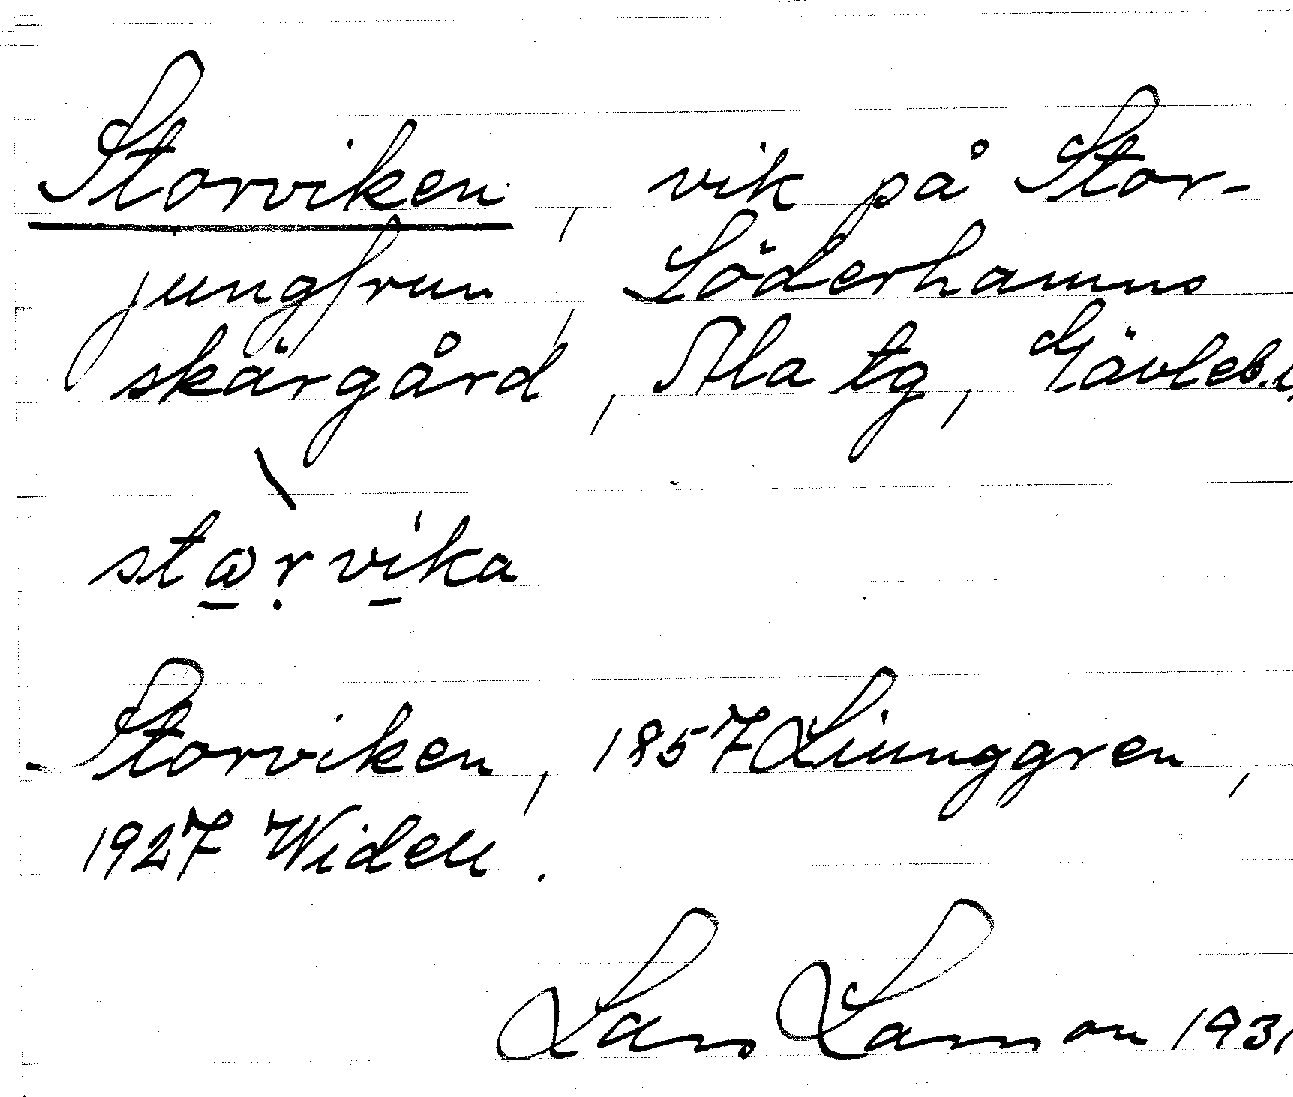 Storviken, vik på Stor-
jungfrun, Söderhamns
skärgård, Ala tg, Gävleb.l.
starvika
Storviken, 1857 Ljunggren,
1927 Widell.
Lars Larsson 1931